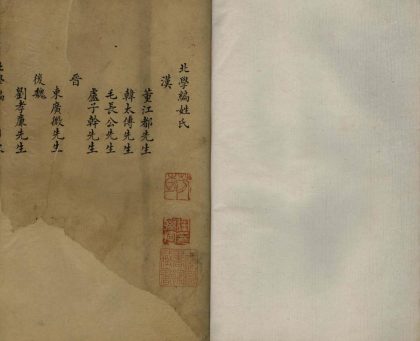 北學編姓氏
漢
董江都先生
韓太傅先生
毛長公先生
盧子幹先生
晉
束廣微先生
後魏
劉孝廉先生